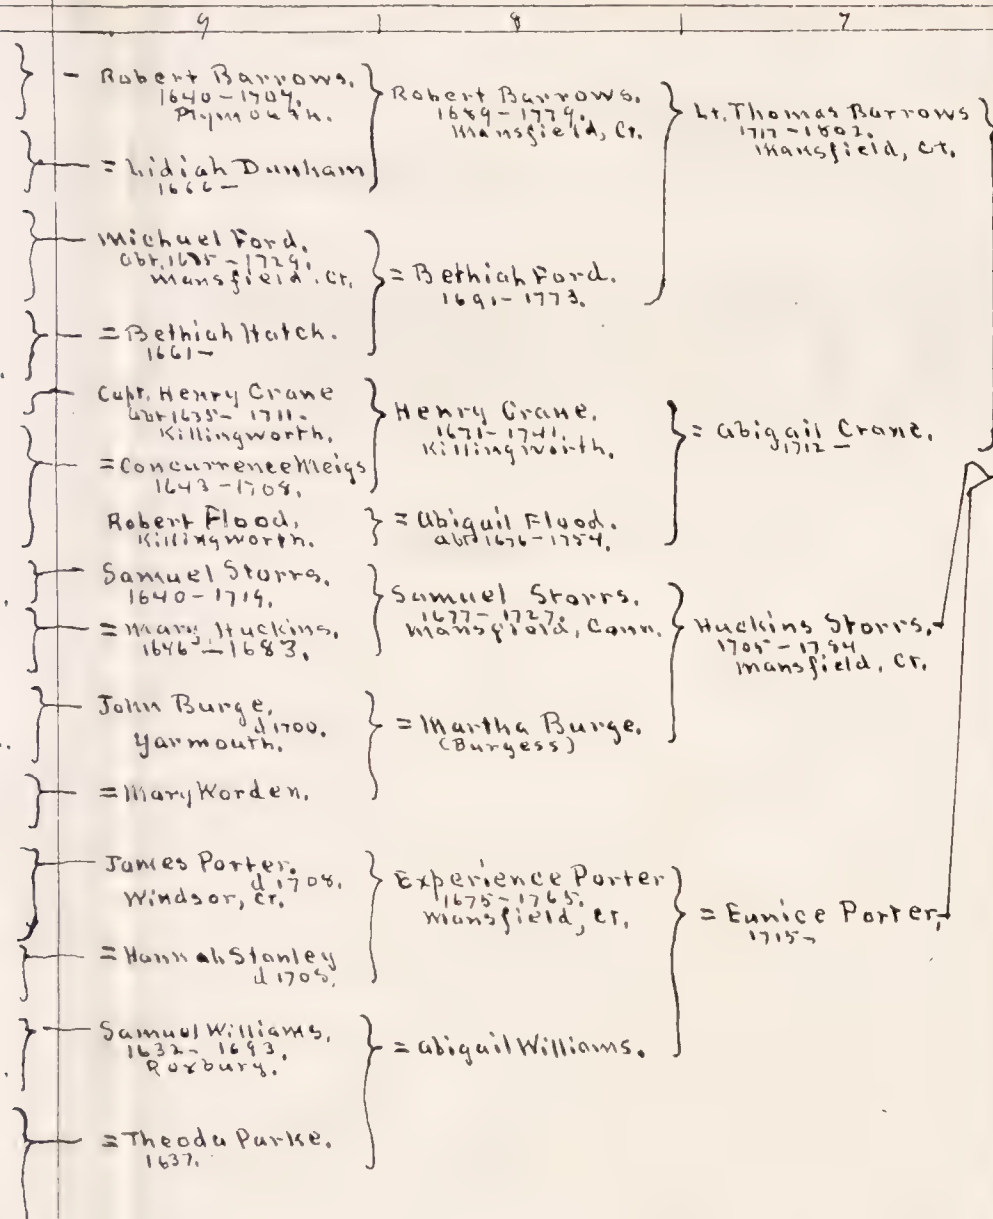 9 8 7
Robert Barrows.
1640-1707.
Plymouth.
= Lidiah Dunham
1666-
Michael Ford.
abt. 1675-1729.
Mansfield, Ct.
= Bethiah Hatch.
1661-
Capt. Henry Crane
abt 1635-1711.
Killingworth.
= Concurrence Meigs
1643-1708.
Robert Flood.
Killingworth.
Samuel Storrs.
1640-1719.
= Mary Huckins.
1646-1683.
John Burge.
d 1700.
Yarmouth.
= Mary Worden.
James Porter.
d 1708.
Windsor, Ct.
= Hannah Stanley
d 1708.
Samuel Williams.
1632-1693.
Roxbury.
= Theoda Parke.
1637.
Robert Barrows.
1689-1779.
Mansfield, Ct.
= Bethiah Ford.
1691-1773.
Henry Crane.
1671-1741.
Killingworth.
= Abigail Flood.
abt 1676-1754.
Samuel Storrs.
1677-1727.
Mansfield, Conn.
= Martha Burge.
(Burgess)
Experience Porter
1675-1765.
Mansfield, Ct.
= Abigail Williams.
Lt. Thomas Barrows
1717-1802.
Mansfield, Ct.
= Abigail Crane.
1712-
Huckins Storrs.
1705-1784
Mansfield, Ct.
= Eunice Porter.
1715-